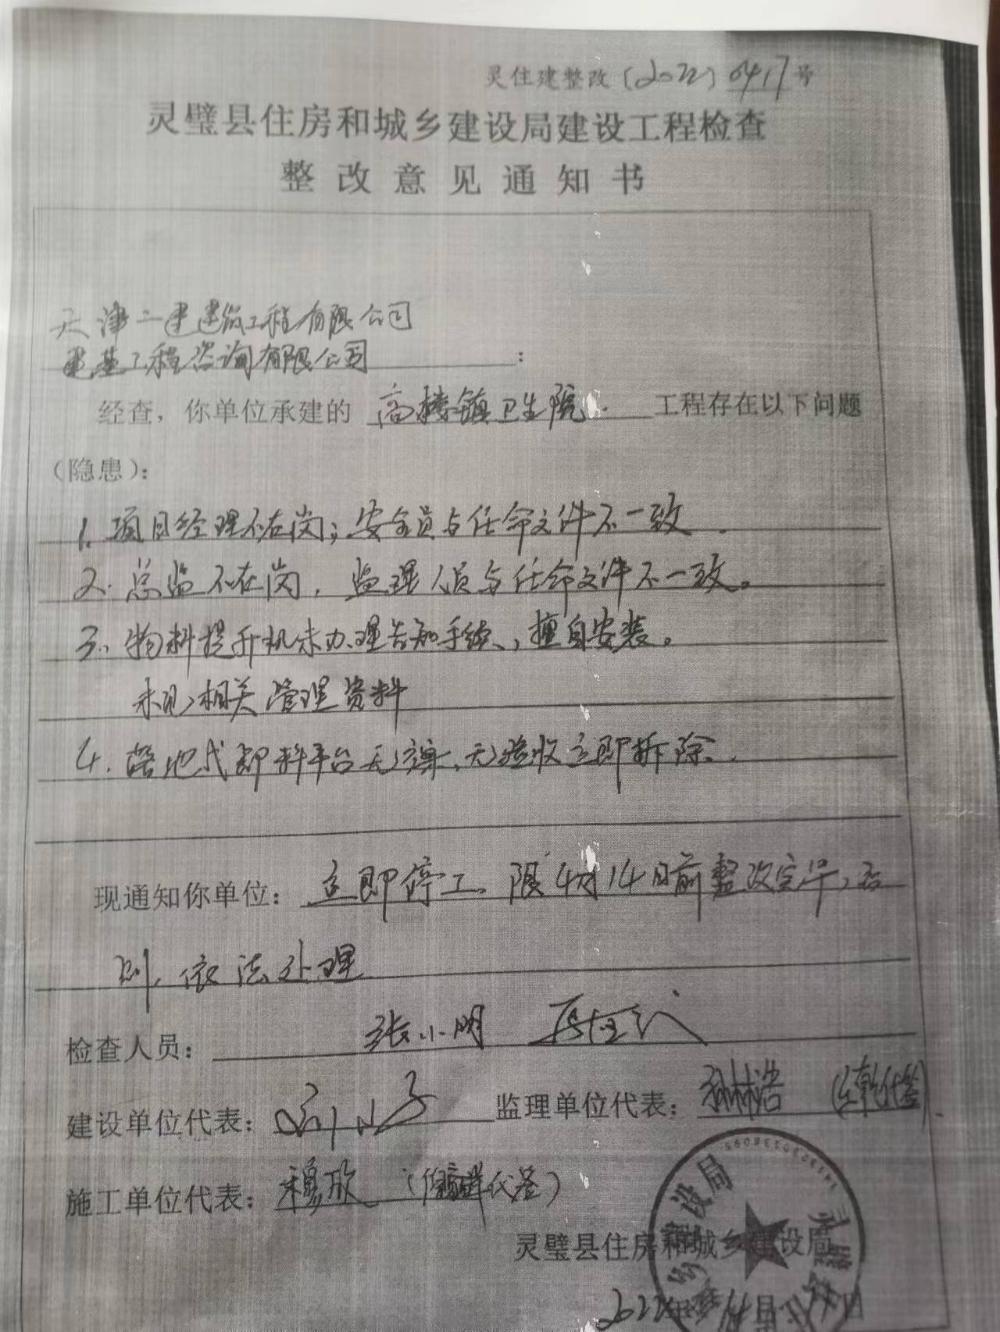 灵住建整改(2022)0417号
灵璧县住房和城乡建设局建设工程检查
整改意见通知书
天津二建建筑工程有限公司
建基工程咨询有限公司:
经查,你单位承建的 高楼镇卫生院. 工程存在以下问题
(隐患):
1. 项目经理不在岗;安全员与任命文件不一致.
2. 总监不在岗,监理人员与任命文件不一致。
3. 物料提升机未办理告知手续,擅自安装。
未见相关管理资料
4. 落地式卸料平台无方案,无验收立即拆除.
现通知你单位:立即停工。限4月14日前整改完毕,否
则,依法处理
检查人员:张小明
建设单位代表: 监理单位代表:孙林浩 (代签)
施工单位代表:穆欣 (代签)
灵璧县住房和城乡建设局